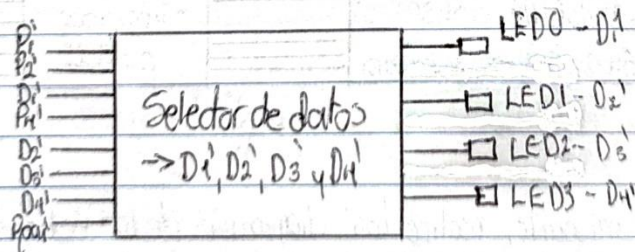 P1'
P2'
D1'
P4'
D2'
D3'
D4'
Selector de datos
→ D1', D2', D3' y D4'
LED0 - D1'
LED1 - D2'
LED2 - D3'
LED3 - D4'